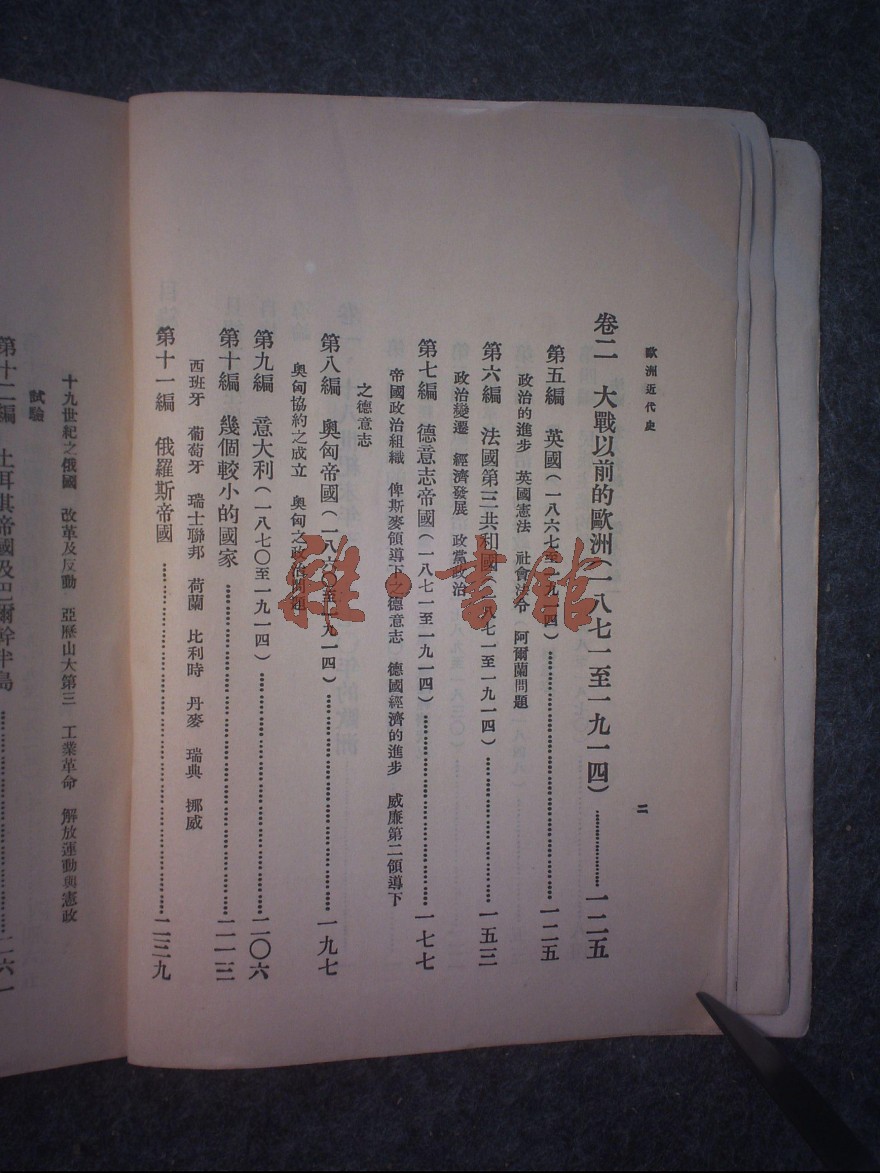 歐洲近代史
二
卷二 大戰以前的歐洲(一八七一至一九一四)……一二五
第五編 英國(一八六七至一九一四)……一二五
政治的進步 英國憲法 社會法令 阿爾蘭問題
第六編 法國第三共和國(一八七一至一九一四)……一五三
政治變遷 經濟發展 政黨政治
第七編 德意志帝國(一八七一至一九一四)……一七七
帝國政治組織 俾斯麥領導下之德意志 德國經濟的進步 威廉第二領導下
之德意志
第八編 奧匈帝國(一八六〇至一九一四)……一九七
奧匈協約之成立 奧匈之政治問題
第九編 意大利(一八七〇至一九一四)……二〇六
第十編 幾個較小的國家……二一三
西班牙 葡萄牙 瑞士聯邦 荷蘭 比利時 丹麥 瑞典 挪威
第十一編 俄羅斯帝國……二三九
十九世紀之俄國 改革及反動 亞歷山大第三 工業革命 解放運動與憲政
試驗
第十二編 土耳其帝國及巴爾幹半島……二六一
雜·書館